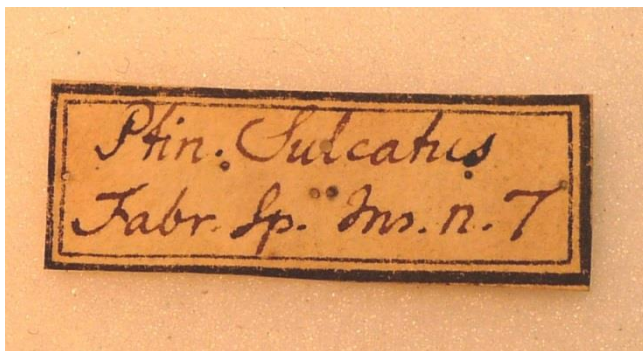 Ptin. Sulcatus
Fabr. Sp. Ins. n. 7